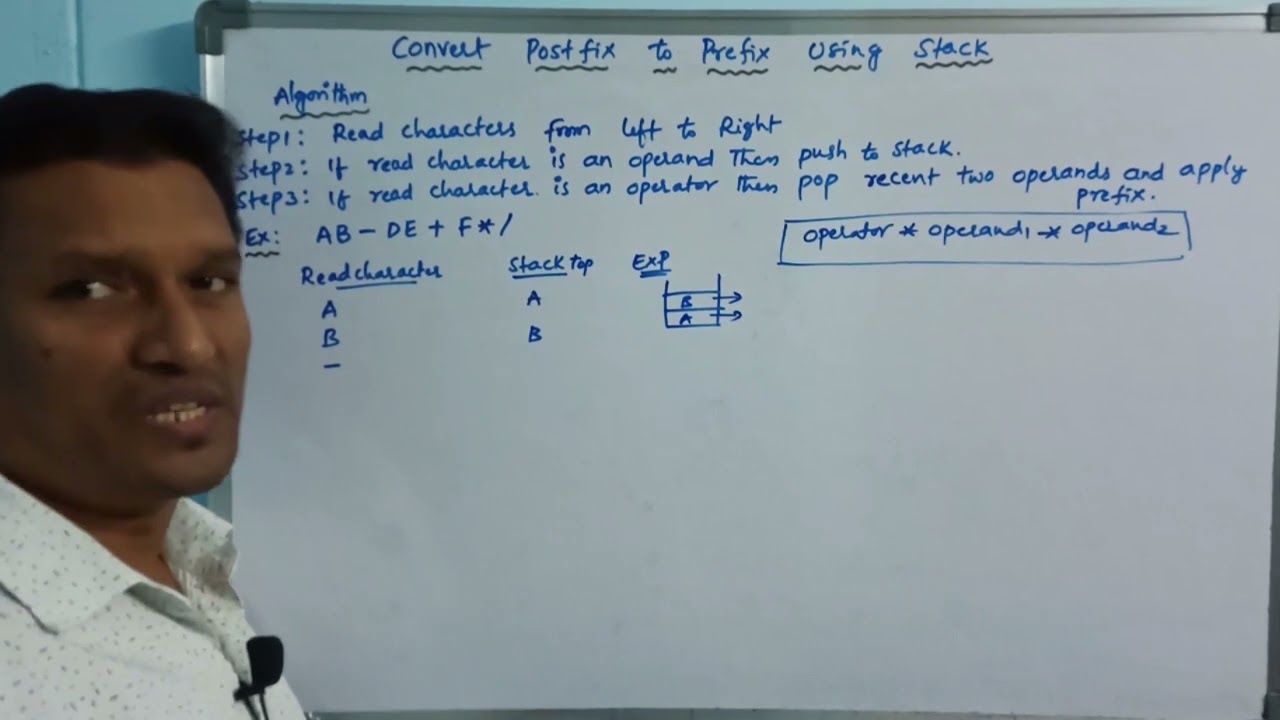 Convert Postfix to Prefix Using Stack
Algorithm
Step1: Read characters from left to Right
Step2: If read character is an operand then push to stack.
Step3: If read character. is an operator then pop recent two operands and apply
prefix.
Ex: AB - DE + F * /
operator * operand1 * operand2
Read character Stack top Exp
A A
B B
-
B
A